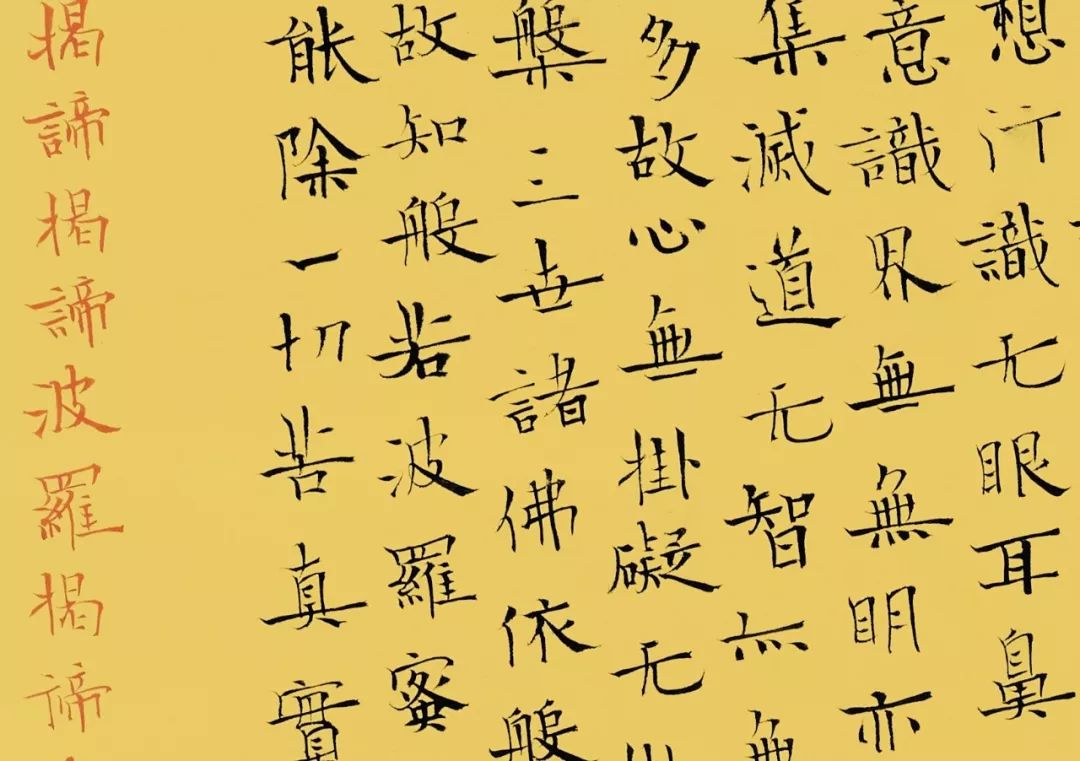 想行識无眼耳鼻
意識界無無明亦
集滅道无智亦無
多故心無掛礙无
槃三世諸佛依般
故知般若波羅蜜
能除一切苦真實
揭諦揭諦波羅揭諦